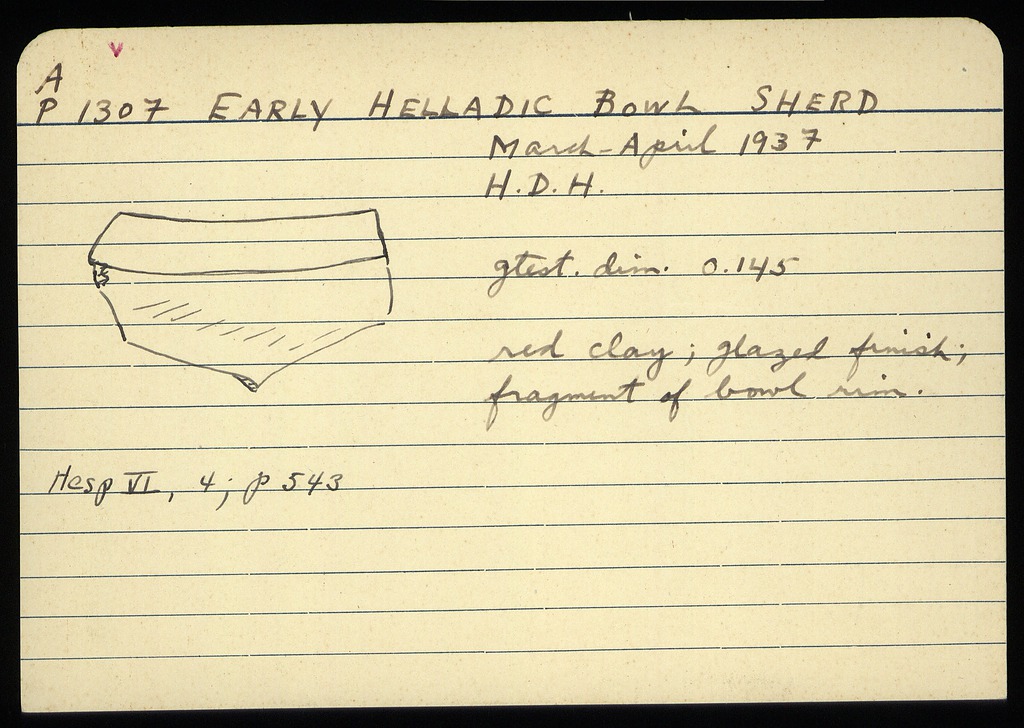 A
P 1307 EARLY HELLADIC BOWL SHERD
March-April 1937
H.D.H.
gtest. dim. 0.145
red clay; glazed finish;
fragment of bowl rim.
Hesp VI, 4; p 543